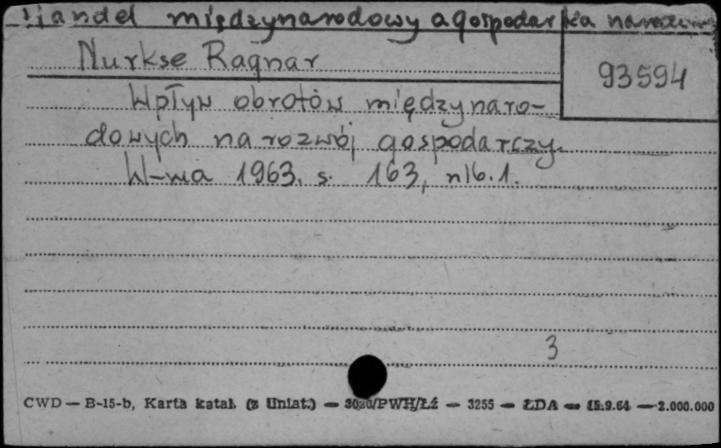 Handel międzynarodowy a gospodarka narodowa
Nurkse Ragnar
93594
Wpływ obrotów międzynaro-
dowych na rozwój gospodarczy.
W-wa 1963. s. 163, nlb. 1.
3
CWD — B-15-b, Karta katal. (z Uniat.) — 3020/PWH/Łź — 3255 — ŁDA — 15.9.64 — 2.000.000